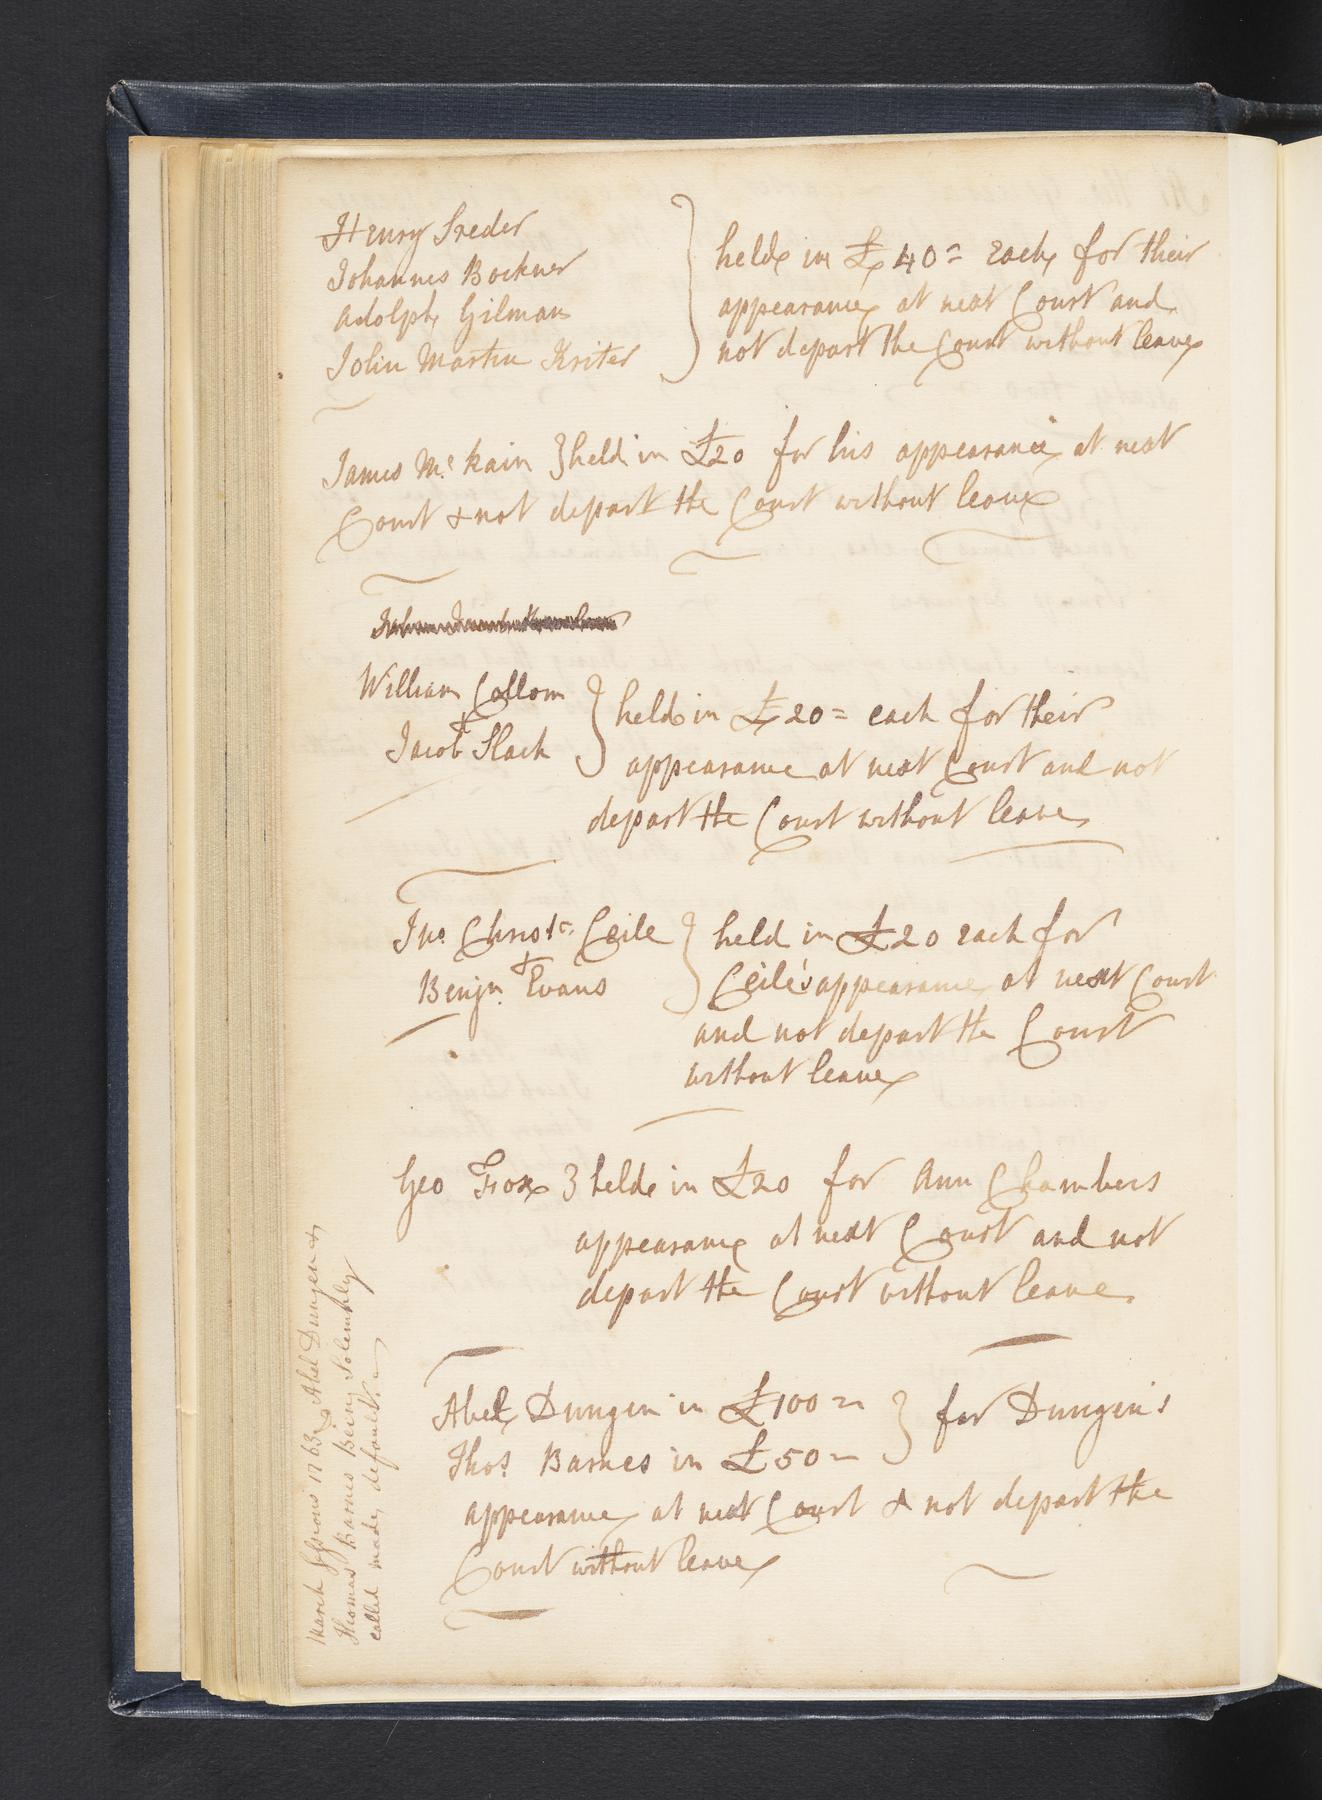 Henry Sreder } held in £40= Each for their
Johannes Bockner appearance at next Court and
Adolph Gilman not depart the Court without leave
John Martin Kriter
James Mc Kain } held in £20 for his appearance at next
Court & not depart the Court without leave
William Collom
& } held in £20= each for their
Jacob Slack appearance at next Court and not
depart the Court without leave
Jno. Christr. Ceile } held in £20 Each for
& Ceile's appearance at next Court
Benjn. Evans and not depart the Court
without leave
Geo Fox } held in £20 for Ann Chambers
appearance at next Court and not
depart the Court without leave
Abel Dungen in £100= } for Dungin's
Thos. Barnes in £50=
appearance at next Court & not depart the
Court without leave
March Sessions 1763 Abel Dungen &
Thomas Barnes Being Solemnly
called made default.